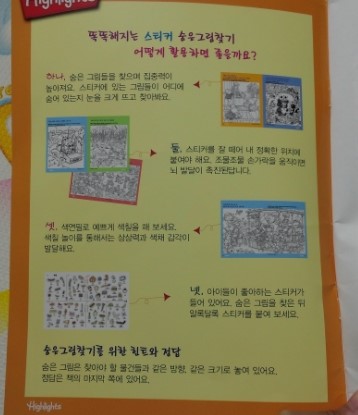 Highlights
똑똑해지는 스티커 숨은그림찾기
어떻게 활용하면 좋을까요?
하나, 숨은 그림들을 찾으며 집중력이
높아져요. 스티커에 있는 그림들이 어디에
숨어 있는지 눈을 크게 뜨고 찾아봐요.
둘, 스티커를 잘 떼어 내 정확한 위치에
붙여야 해요. 조물조물 손가락을 움직이면
뇌 발달이 촉진된답니다.
셋, 색연필로 예쁘게 색칠을 해 보세요.
색칠 놀이를 통해서는 상상력과 색채 감각이
발달해요.
넷, 아이들이 좋아하는 스티커가
들어 있어요. 숨은 그림을 찾은 뒤
알록달록 스티커를 붙여 보세요.
숨은그림찾기를 위한 힌트와 정답
숨은 그림은 찾아야 할 물건들과 같은 방향, 같은 크기로 놓여 있어요.
정답은 책의 마지막 쪽에 있어요.
Highlights